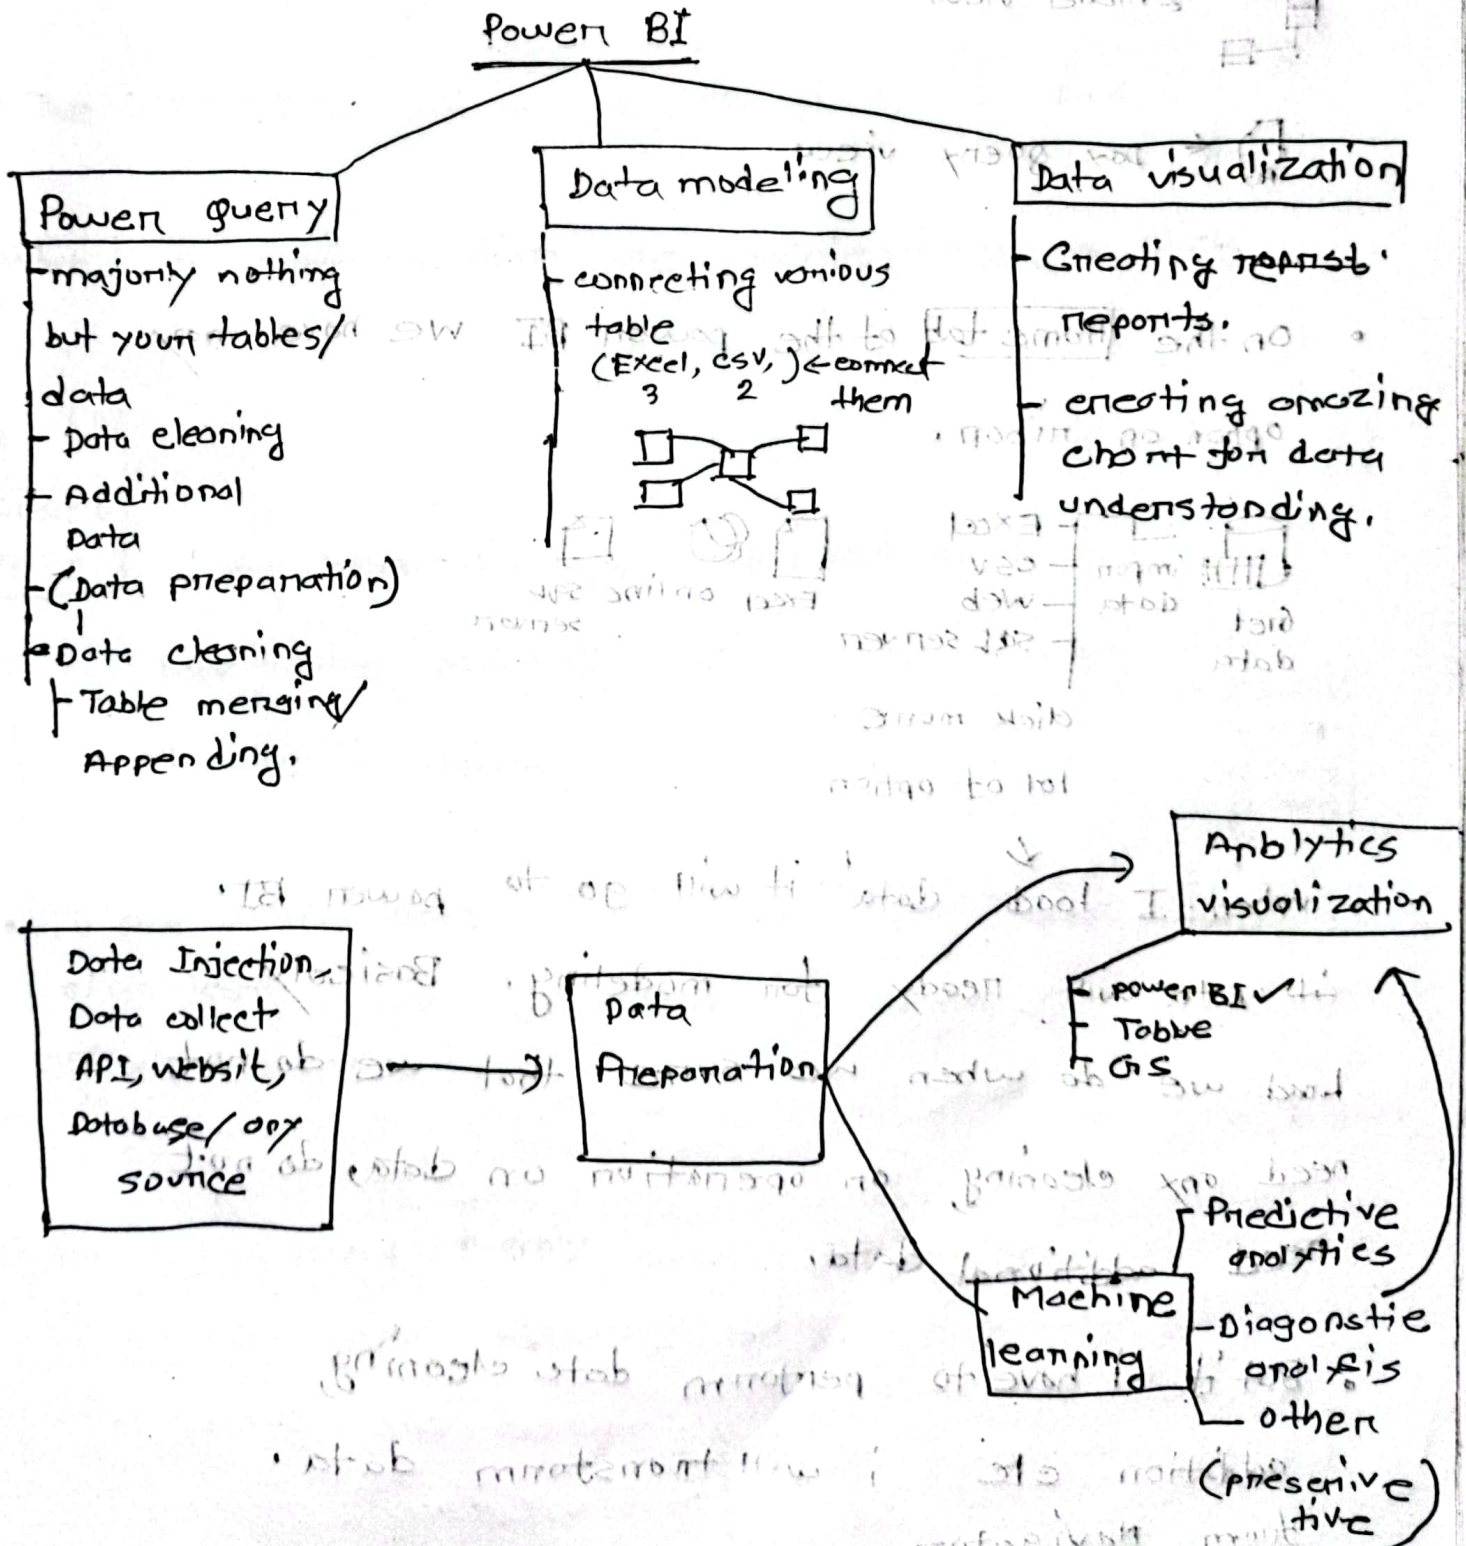 Power BI
Power Query
majorly nothing
but your tables/
data
- Data cleaning
- Additional
Data
- (Data preparation)
Data cleaning
- Table merging/
Appending.
Data modeling
- connecting various
table
(Excel, CSV, ) ← connect
3 2 them
Data visualization
- Creating
reports.
- creating amazing
chart for data
understanding.
Data Injection
Data collect
API, websit,
Database/ any
source
Data
Preparation
Analytics
visualization
- power BI ✓
- Table
- GS
Machine
learning
- Predictive
analytics
- Diagonstic
analysis
- other
(prescrive
tive